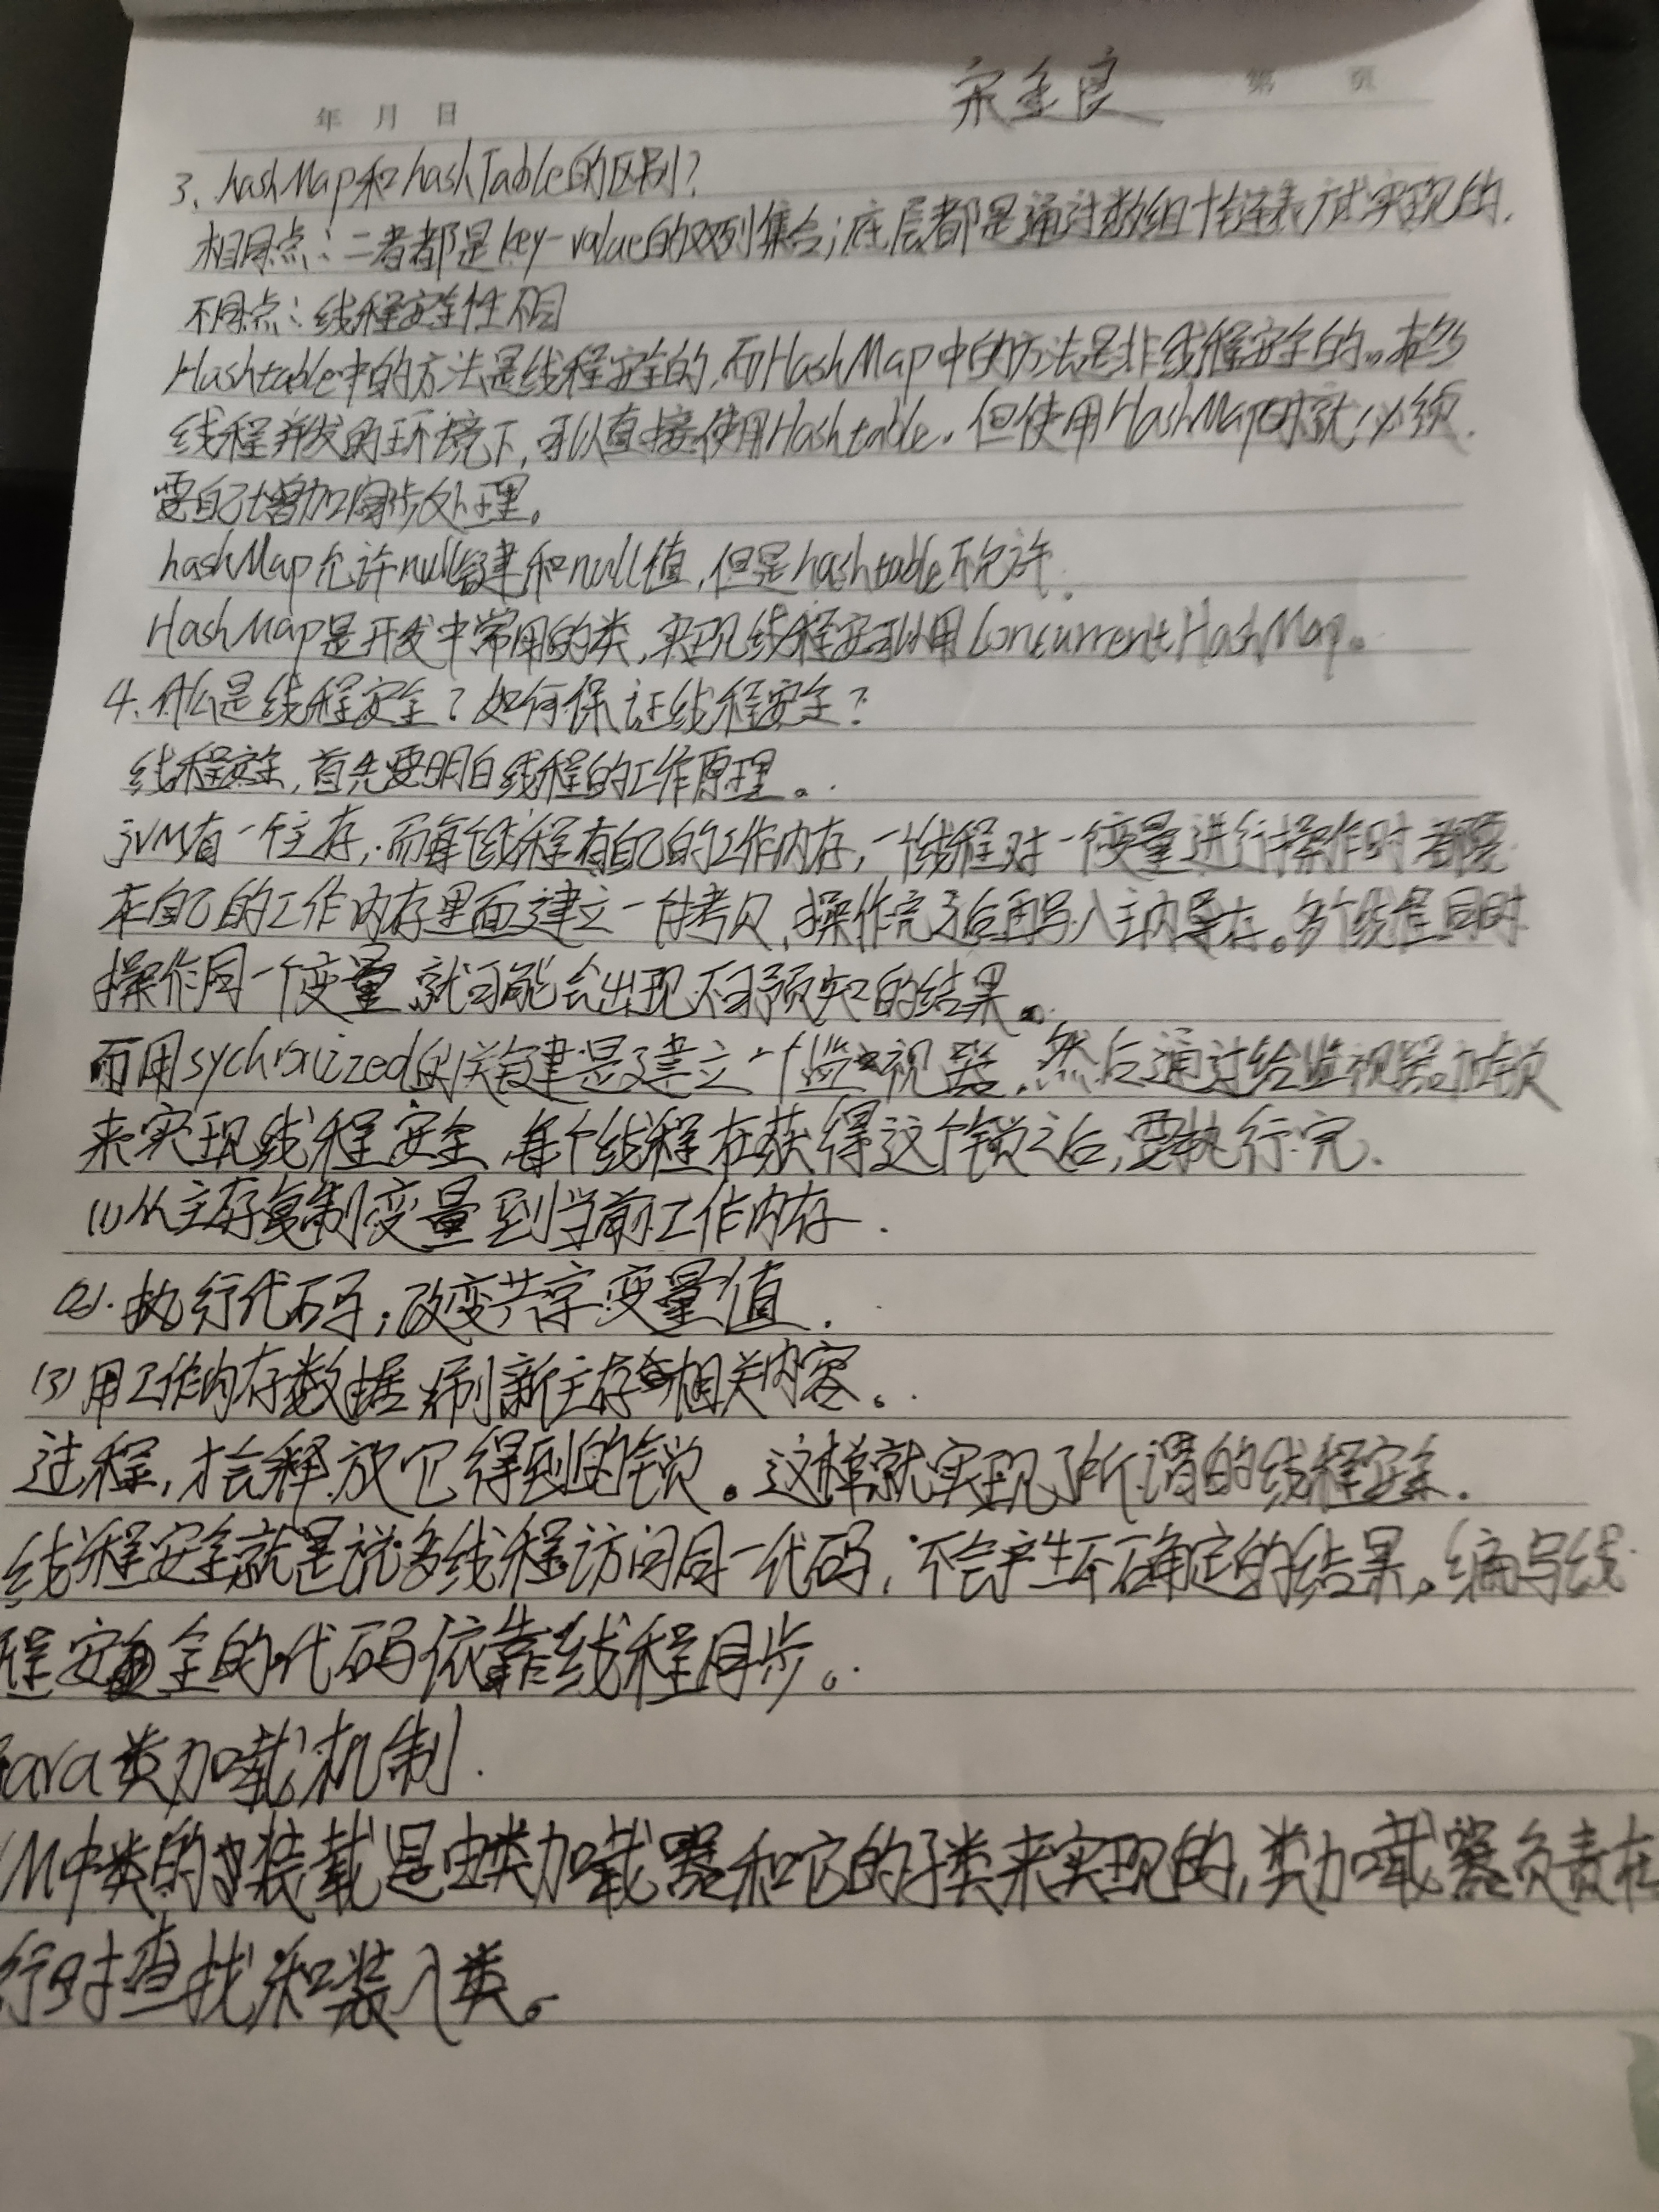 宋金良 第 页
年 月 日
3、hashMap和hashTable的区别?
相同点:二者都是key-value的双列集合;底层都是通过数组+链表方式实现的.
不同点:线程安全性不同
Hashtable中的方法是线程安全的,而HashMap中的方法是非线程安全的。在多
线程并发的环境下,可以直接使用Hashtable.但使用HashMap时就必须
要自己增加同步处理。
hashMap允许null键和null值,但是hashtable不允许.
HashMap是开发中常用的类,实现线程安可以用ConcurrentHashMap。
4.什么是线程安全?如何保证线程安全?
线程安全,首先要明白线程的工作原理。
jvM有一个主存,而每个线程有自己的工作内存,一个线程对一个变量进行操作时都要
在自己的工作内存里面建立一个拷贝,操作完了后再写入主内存。多个线程同时
操作同一个变量,就可能会出现不可预知的结果。
而用sychronized的关键是建立一个监视器,然后通过给监视器加锁
来实现线程安全,每个线程在获得这个锁之后,要执行完、
(1)从主存复制变量到当前工作内存.
(2).执行代码;改变共享变量值.
(3)用工作内存数据刷新主存相关内容。
过程,才会释放它得到的锁。这样就实现了所谓的线程安全.
线程安全就是说多线程访问同一代码,不会产生不确定的结果。编写线
程安全的代码依靠线程同步。
ava类加载机制.
VM中类的装载是由类加载器和它的子类来实现的,类加载器负责在
行时查找和装入类。